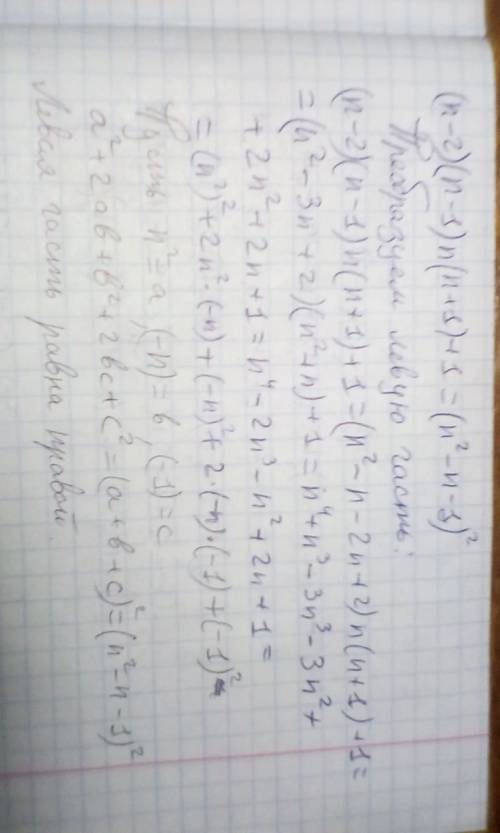 (n-2)(n-1)n(n+1)+1=(n²-n-1)²
Преобразуем левую часть:
(n-2)(n-1)n(n+1)+1=(n²-n-2n+2)n(n+1)+1=
=(n²-3n+2)(n²+n)+1=n⁴+n³-3n³-3n²+
+2n²+2n+1=n⁴-2n³-n²+2n+1=
=(n²)²+2n²·(-n)+(-n)²+2·(-n)·(-1)+(-1)²
Пусть n²=a, (-n)=b, (-1)=c
a²+2ab+b²+2bc+c²=(a+b+c)²=(n²-n-1)²
Левая часть равна правой.